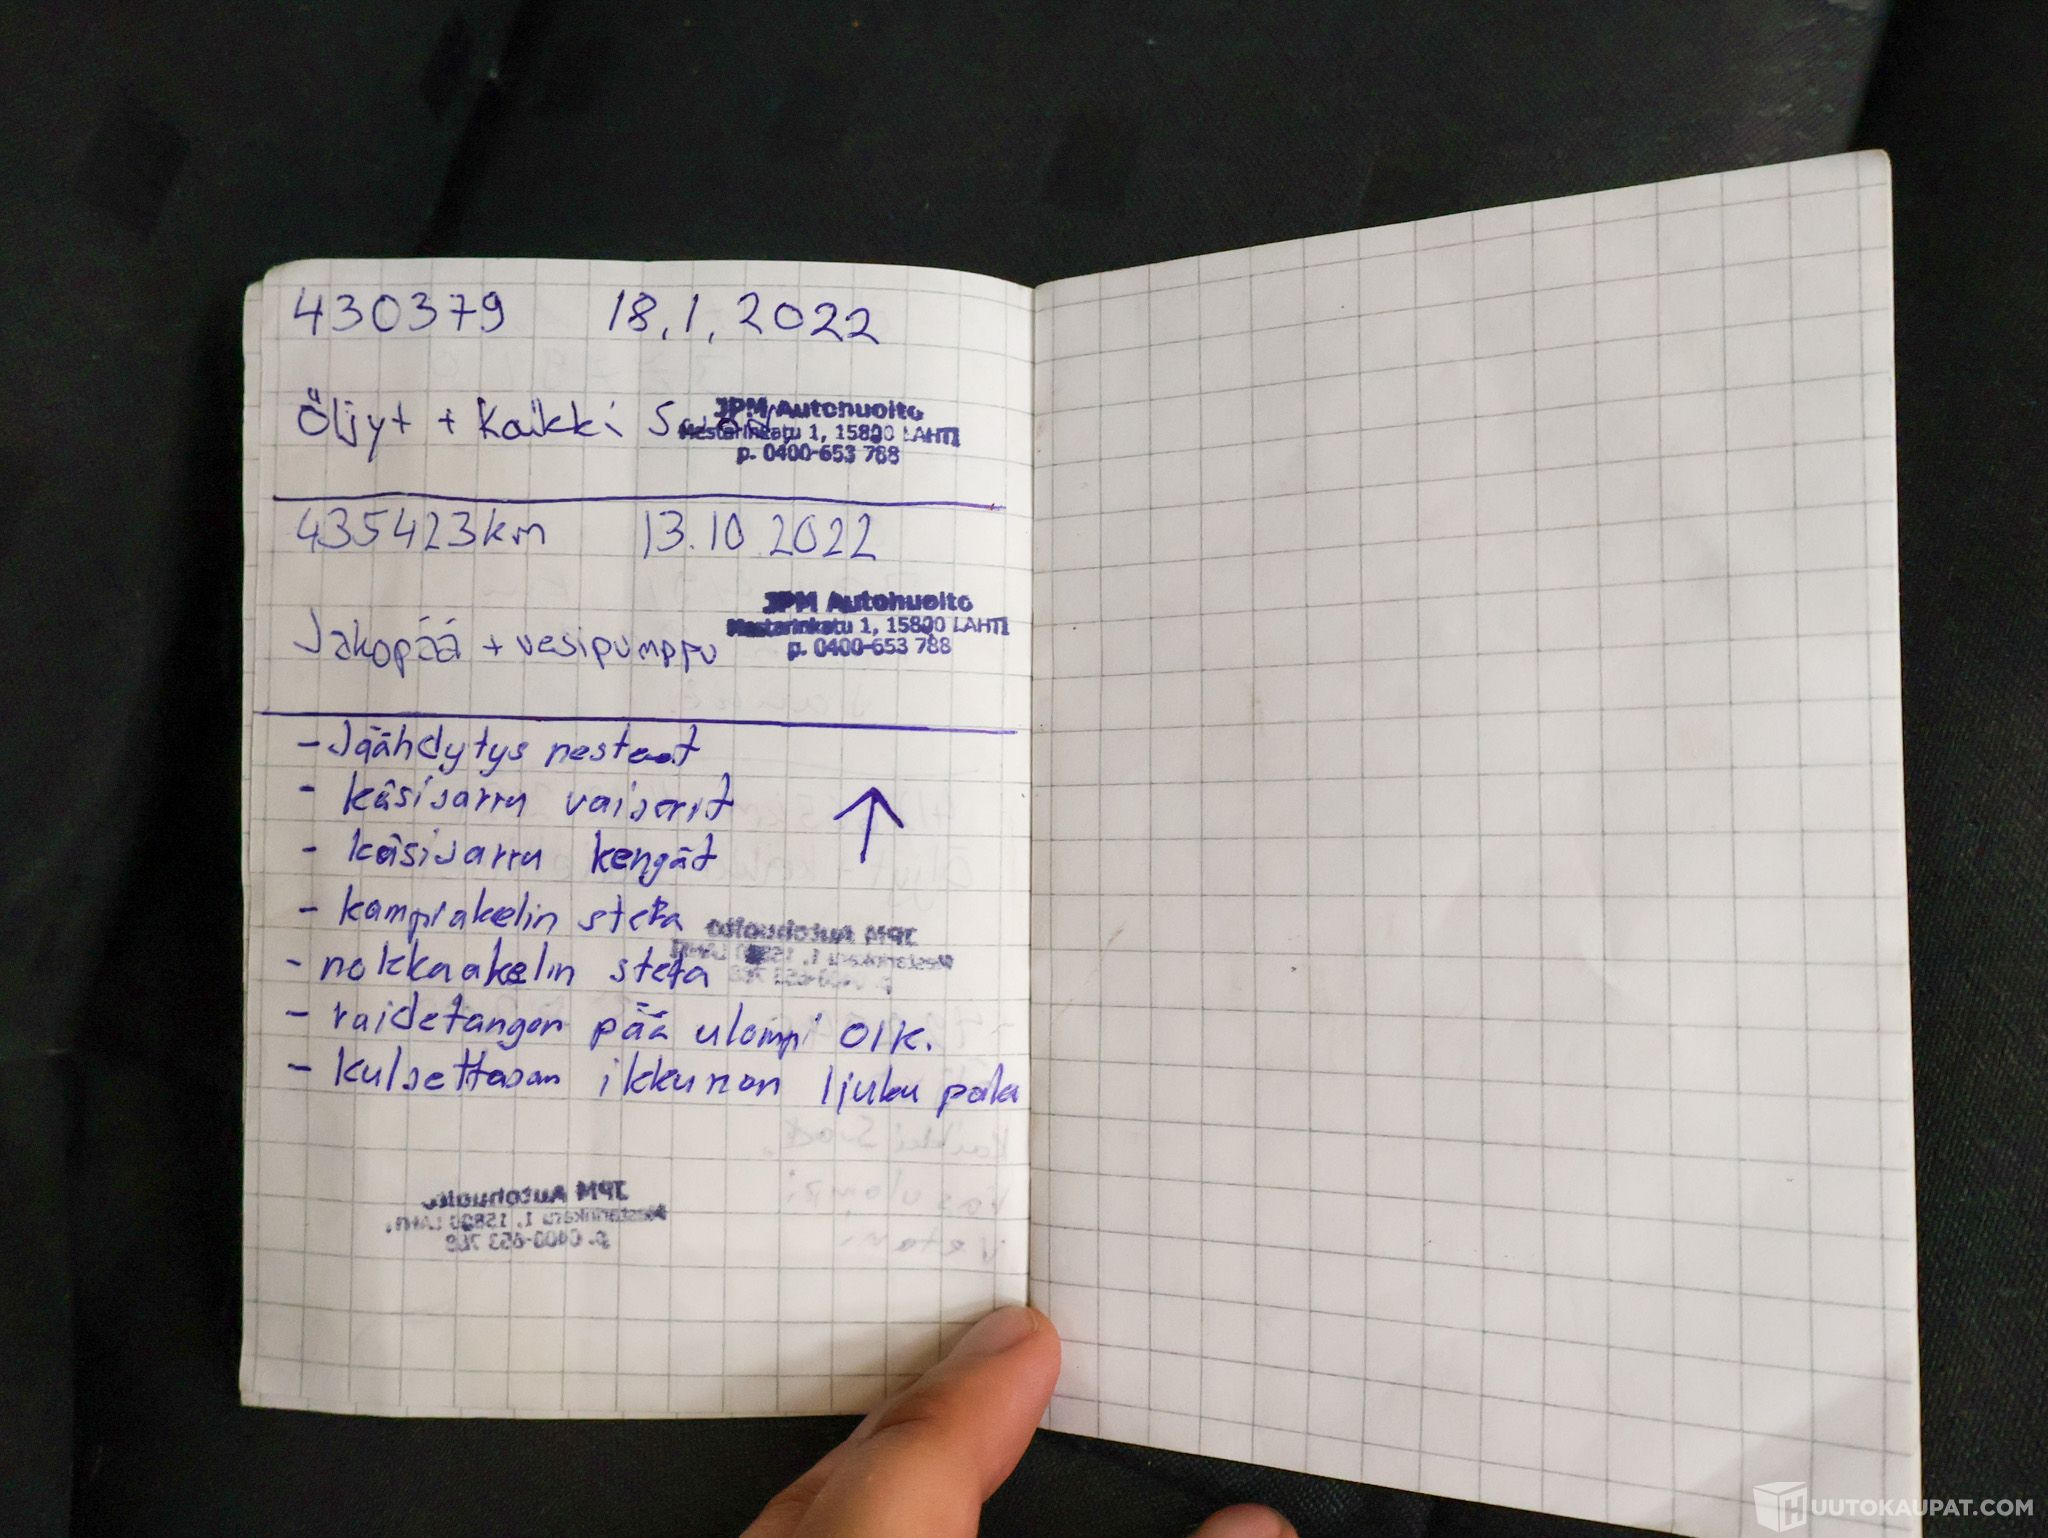 430379 18.1.2022
Öljyt + kaikki
JPM Autohuolto
Mestarinkatu 1, 15800 LAHTI
p. 0400-653 788
435423km 13.10.2022
JPM Autohuolto
Mestarinkatu 1, 15800 LAHTI
p. 0400-653 788
Jakopää + vesipumppu
- Jäähdytys nesteet
- käsijarru vaijerit
- käsijarru kengät
- kampiakelin stefa
- nokkaakelin stefa
- raidetangon pää ulompi oik.
- kuljettajan ikkunan ljuku pala
JPM Autohuolto
Mestarinkatu 1, 15800 LAHTI
p. 0400-653 788
Kaikki
JPM Autohuolto
Mestarinkatu 1, 15800 LAHTI
p. 0400-653 788
HUUTOKAUPAT.COM